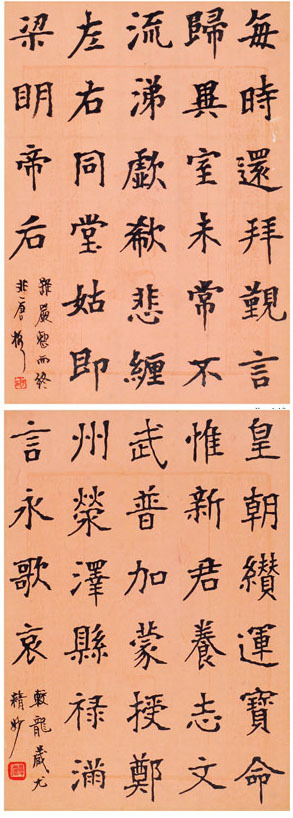 每時還拜覲言
歸異室未常不
流涕歔欷悲纏
左右同堂姑即
梁明帝后
皇朝纘運寶命
惟新君養志文
武普加蒙授鄭
州滎澤縣祿滿
言永歌哀
龍藏尤
精妙